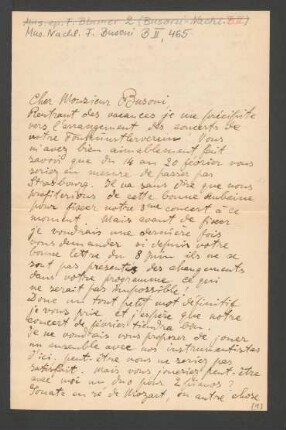 Mus. ep. F. Blumer 2 (Busoni-Nachl. B II)
Mus. Nachl. F. Busoni B II, 465
Cher Monsieur Busoni
Rentrant des vacances je me précipite
vers l'arrangement des concerts de
notre Tonkünstlerverein. Vous
m'avez bien aimablement fait
savoir que du 14 au 20 février vous
seriez en mesure de passer par
Strasbourg. Il va sans dire que nous
profiterions de cette bonne aubaine
pour fixer notre concert à ce
moment. Mais avant de fixer
je voudrais une dernière fois
vous demander si depuis votre
bonne lettre du 8 juin ils ne se
sont pas présentés des changements
dans votre programme, ce qui
ne serait pas impossible!
Donc un tout petit mot définitif
je vous prie et j'espère que notre
concert de février tiendra bon.
Je ne voudrais vous proposer de jouer
un ensemble avec nos instrumentistes
d'ici, peut-être vous ne seriez pas
satisfait. Mais vous joueriez peut-être
avec moi un duo pour 2 pianos?
Sonate en ré de Mozart, ou autre chose